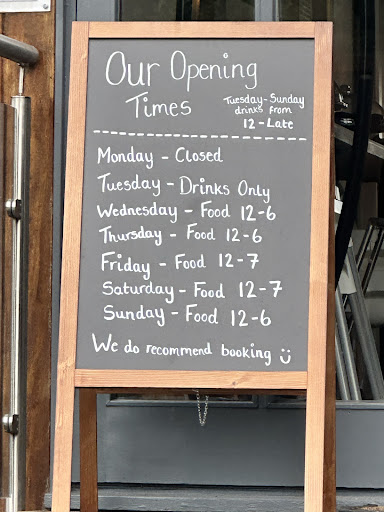 Our Opening
Times
Tuesday - Sunday
drinks from
12 - Late
Monday - Closed
Tuesday - Drinks Only
Wednesday - Food 12-6
Thursday - Food 12-6
Friday - Food 12-7
Saturday - Food 12-7
Sunday - Food 12-6
We do recommend booking ☺